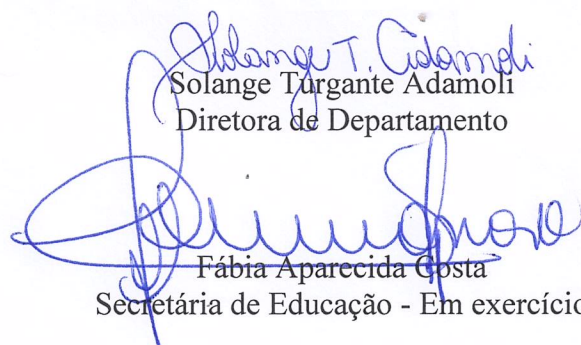 Solange T. Adamoli
Solange Turgante Adamoli
Diretora de Departamento
Fábia Aparecida Costa
Secretária de Educação - Em exercício